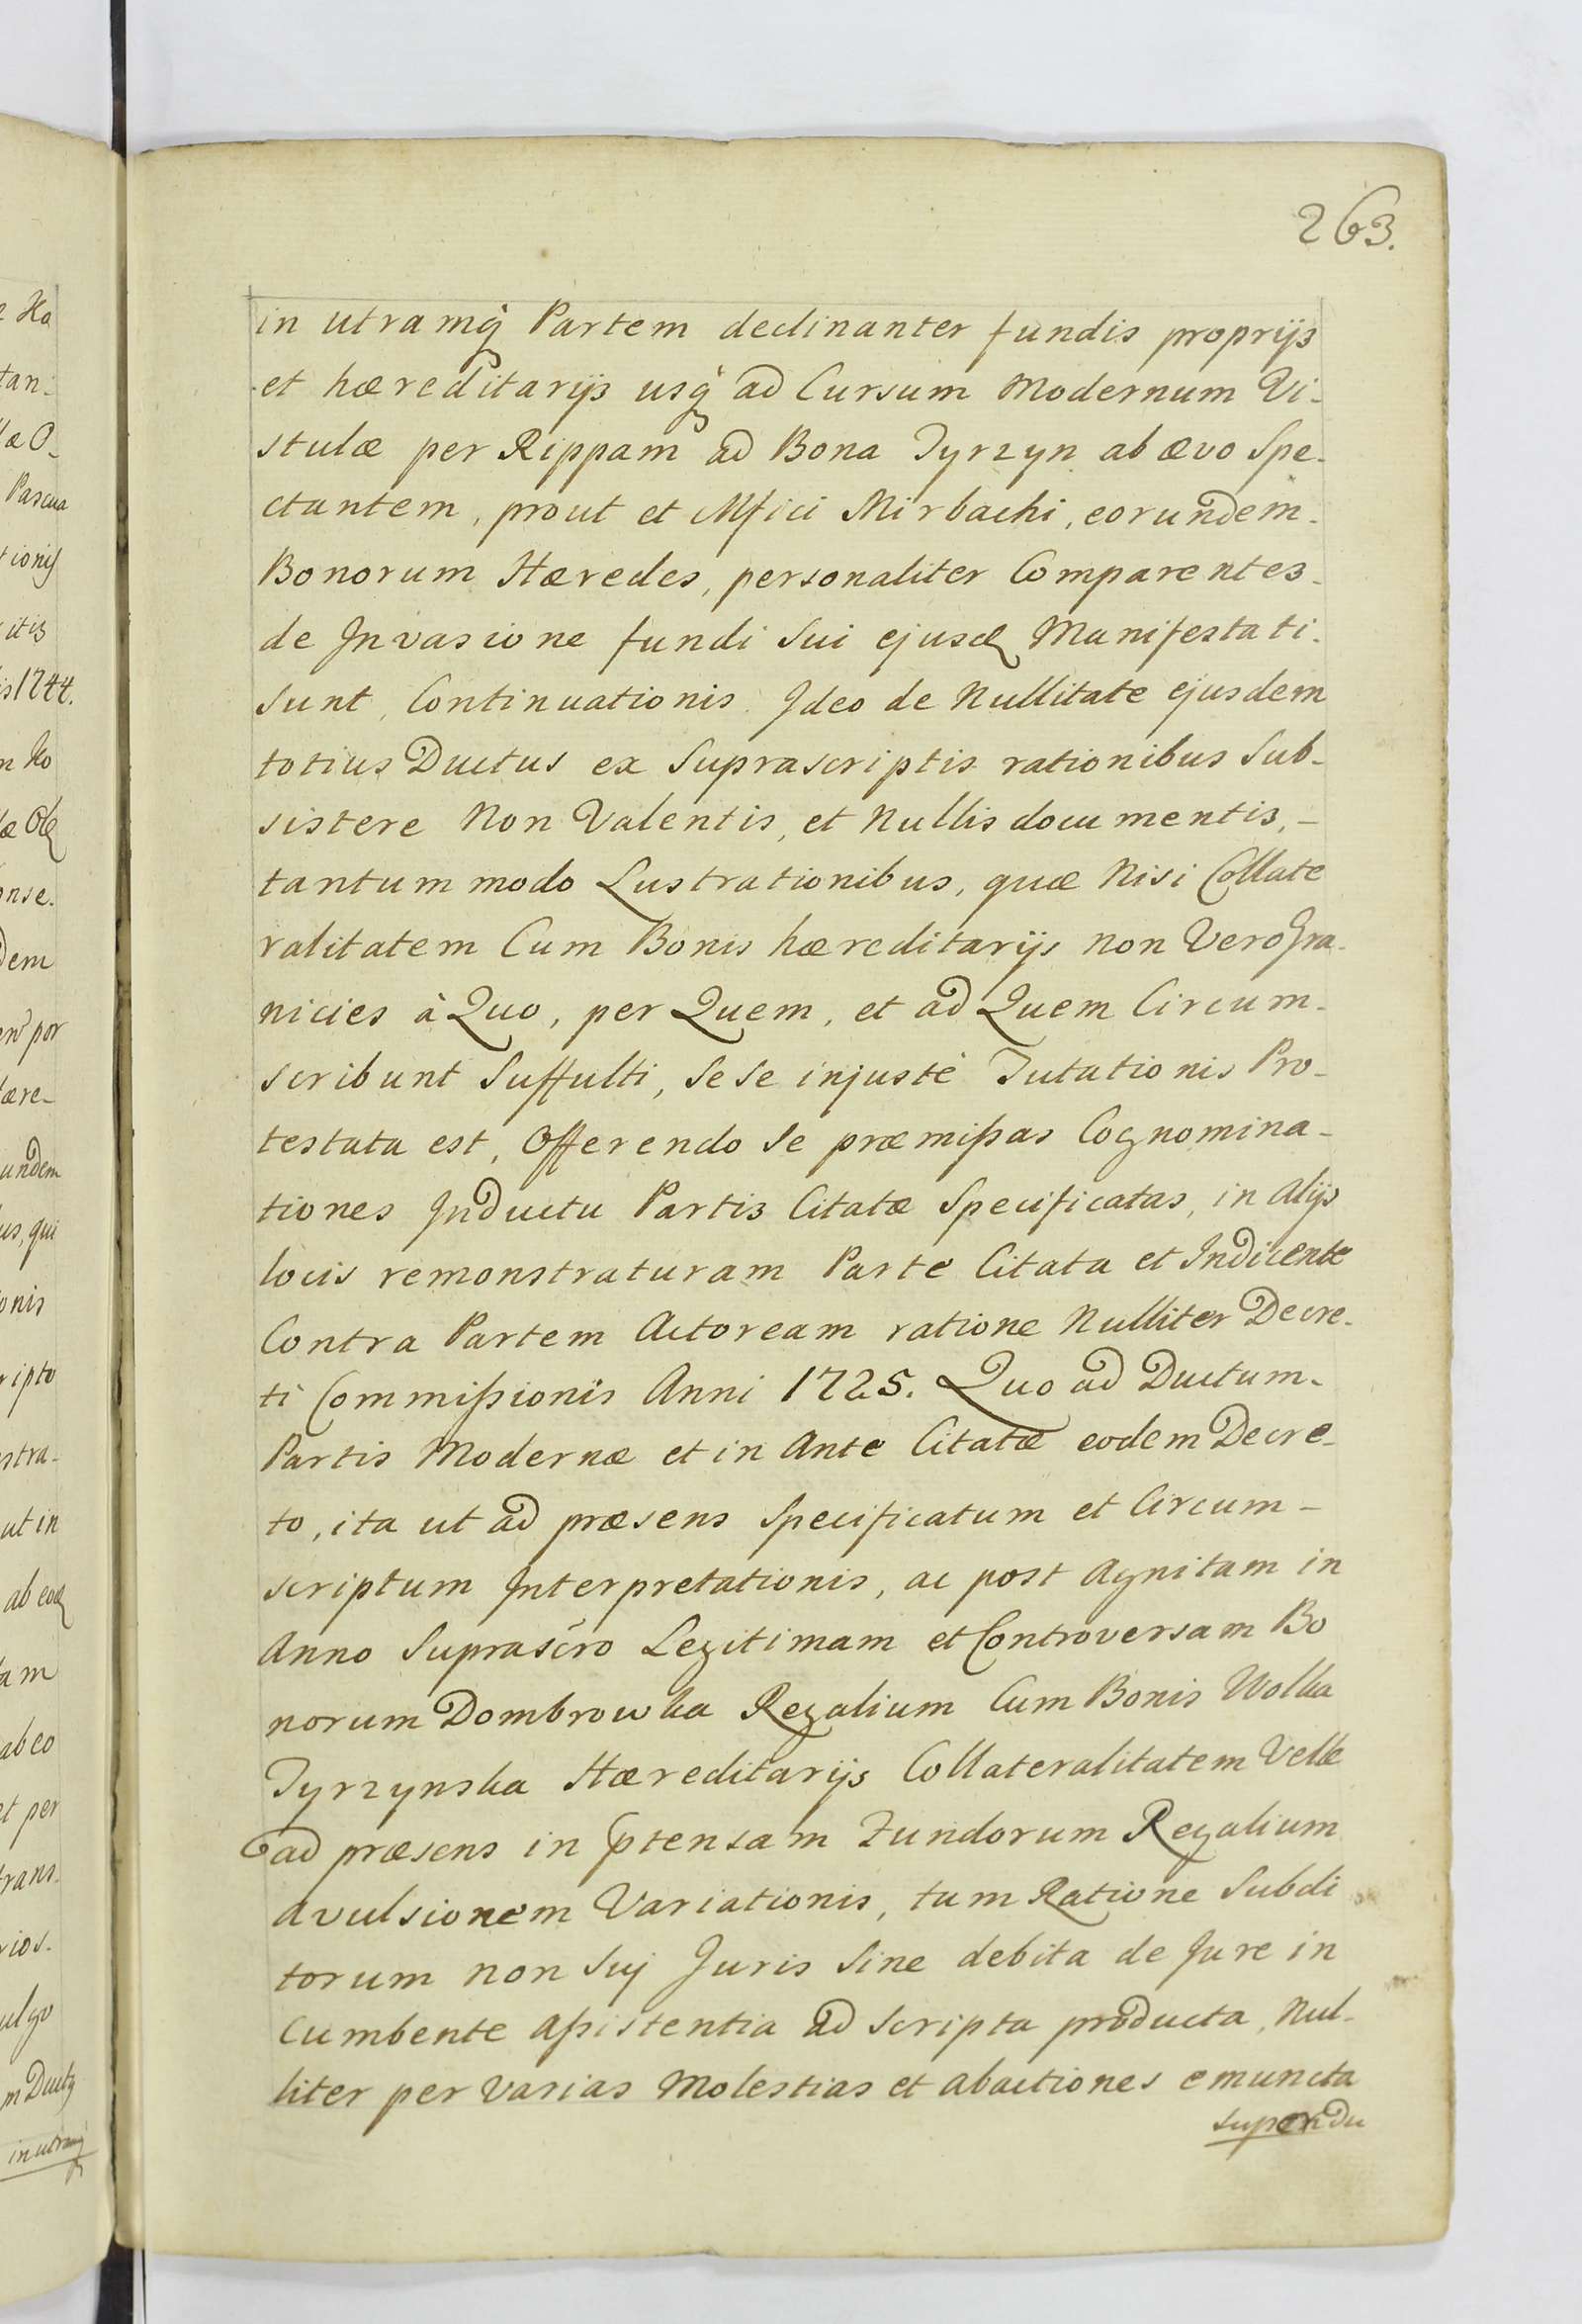 263.
in utramq́ Partem declinanter fundis proprijs
et hæreditarijs usq́ ad Cursum Modernum Vi-
stulæ per Rippam ad Bona Tyrzyn ab ævo Spe-
ctantem, prout et Mfici Mirbachi, eorundem-
Bonorum Hæredes, personaliter Comparentes-
de Invasione fundi Sui ejusd Manifestati-
Sunt, Continuationis. Ideo de Nullitate ejusdem
totius Ductus ex Suprascriptis rationibus Sub-
sistere Non Valentis, et Nullis documentis, -
tantum modo Lustrationibus, quæ Nisi Collate
ralitatem Cum Bonis hæreditarijs non Vero Gra-
nicies à Quo, per Quem, et ad Quem Circum-
scribunt Suffulti, Se Se injustè Tutationis Pro-
testata est, Offerendo Se præmißas Cognomina-
tiones In Ductu Partis Citatæ Specificatas, in Alijs
locis remonstraturam Parte Citata et Indicente
Contra Partem Actoream ratione Nulliter Decre-
ti Commißionis Anni 1725. Quo ad Ductum-
Partis Modernæ et in Ante Citatæ eodem Decre-
to, ita ut ad præsens Specificatum et Circum-
scriptum Interpretationis, ac post Agnitam in
Anno Suprascro Legitimam et Controversam Bo
norum Dombrowka Regalium Cum Bonis Wolka
Tyrzynska Hæreditarijs Collateralitatem Velle
ad præsens in ptensam Fundorum Regalium
Avulsionem Variationis, tum Ratione Subdi
torum non Suj Juris Sine debita de Jure in
Cumbente Aßistentia ad Scripta producta, Nul-
liter per Varias Molestias et abactiones emuncta